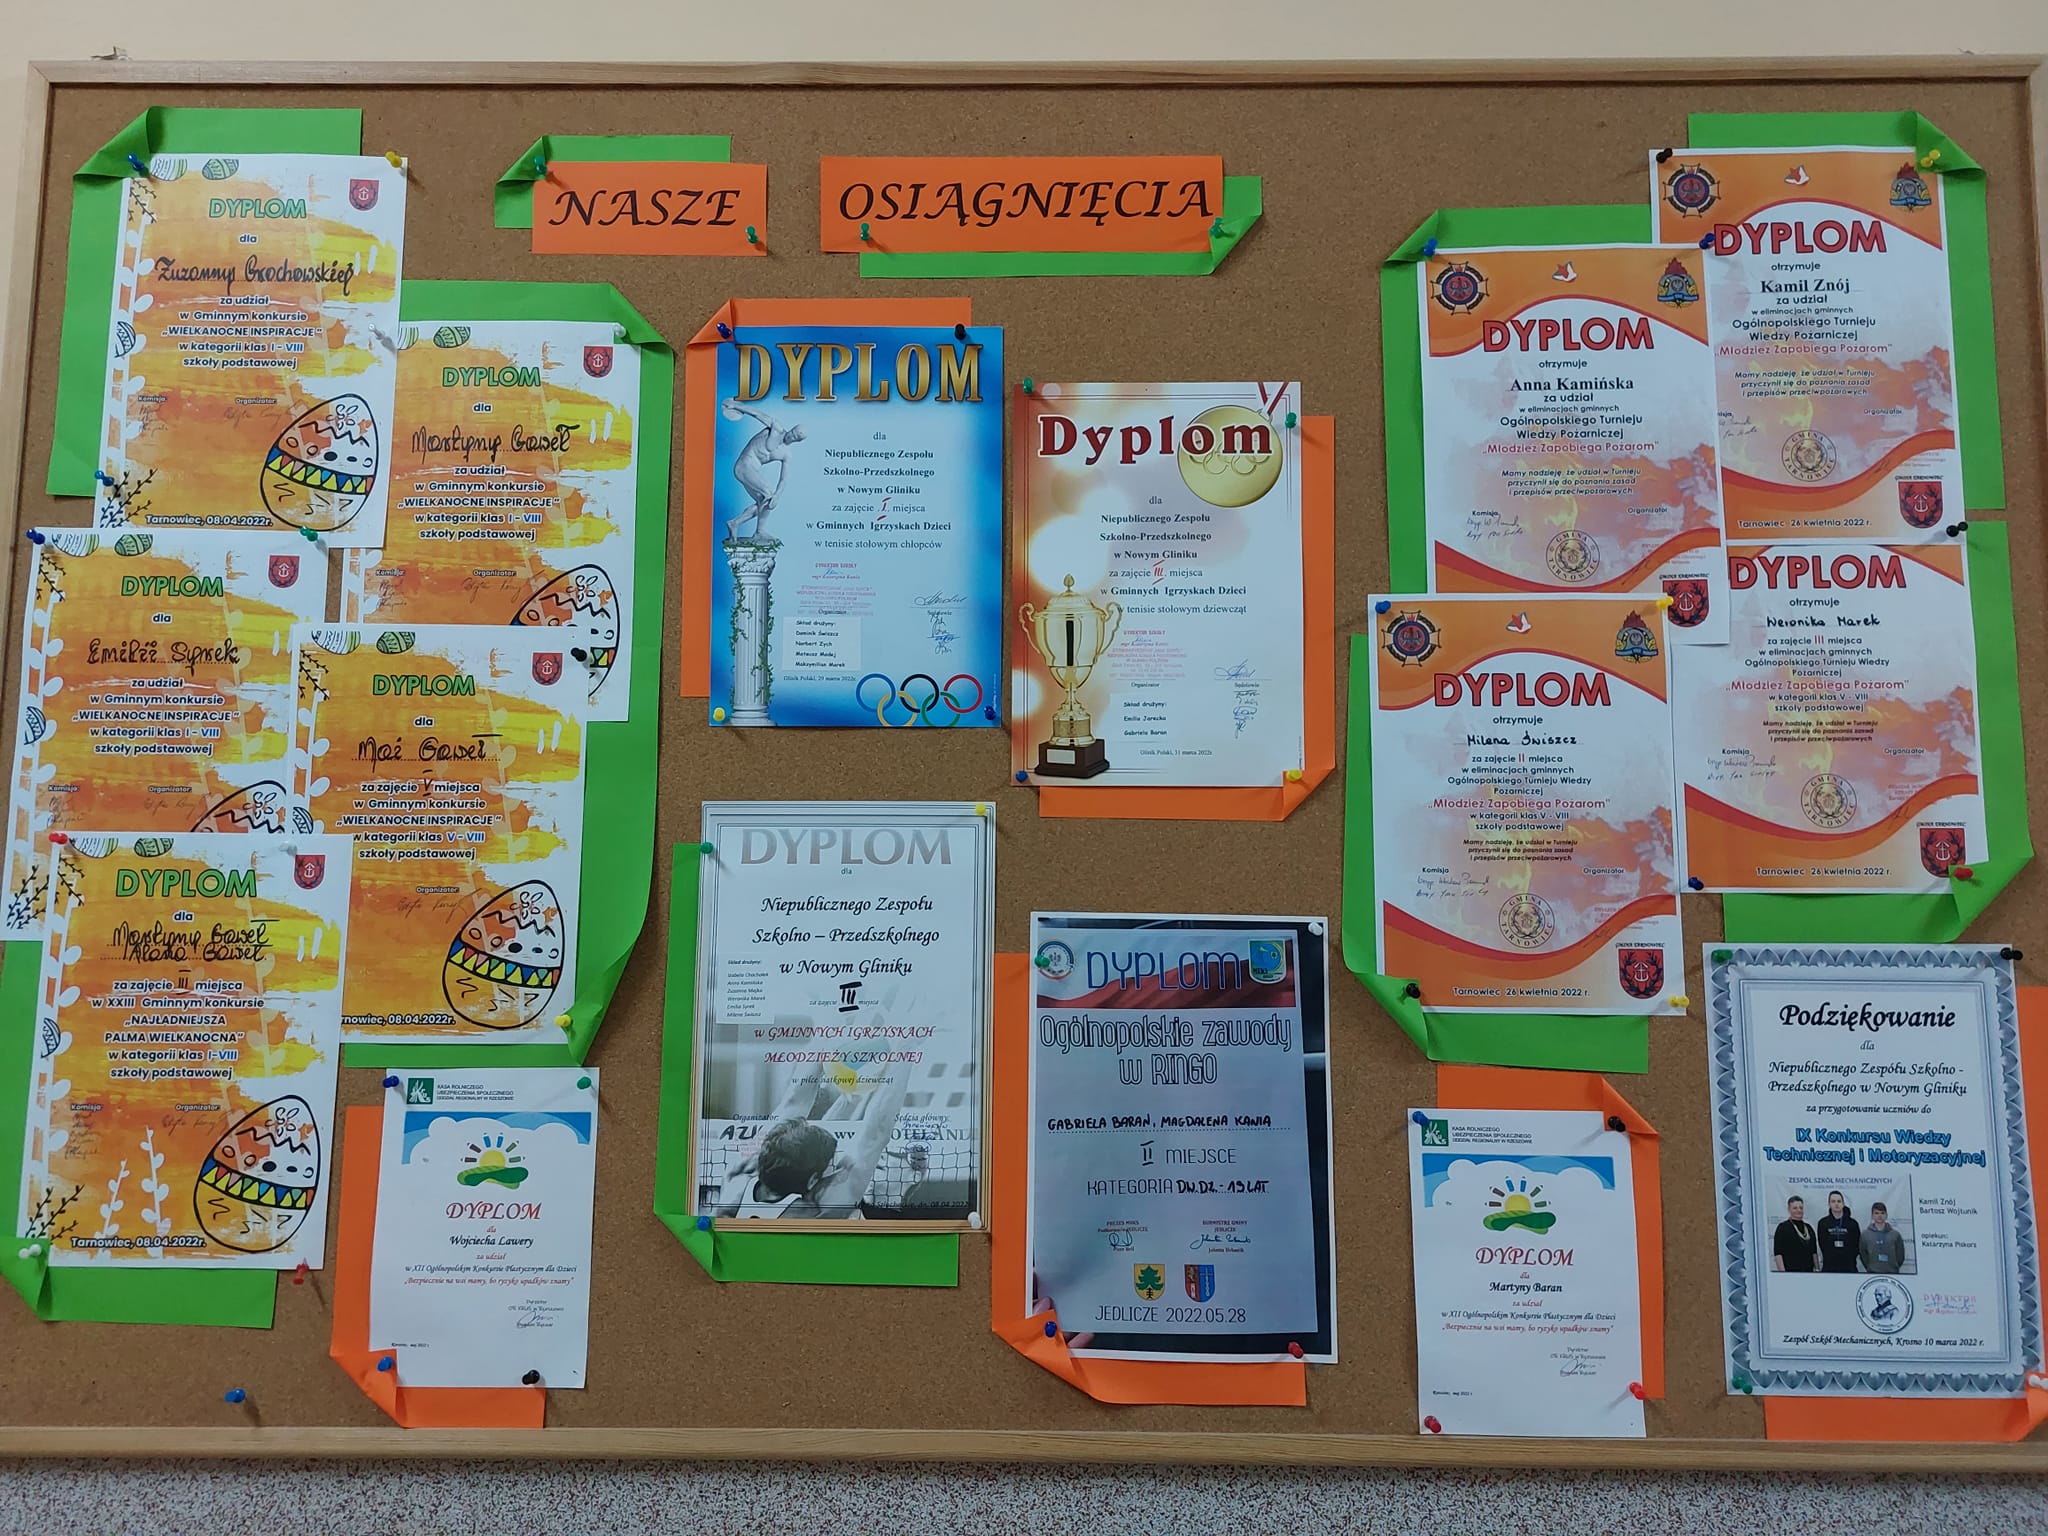 NASZE OSIĄGNIĘCIA
DYPLOM
dla
Zuzanny Grochowskiej
za udział
w Gminnym konkursie
„WIELKANOCNE INSPIRACJE"
w kategorii klas I - VIII
szkoły podstawowej
Komisja: Organizator:
Tarnowiec, 08.04.2022r.
DYPLOM
dla
Martyny Gaweł
za udział
w Gminnym konkursie
„WIELKANOCNE INSPIRACJE"
w kategorii klas I - VIII
szkoły podstawowej
Komisja: Organizator:
DYPLOM
dla
Emilii Syrek
za udział
w Gminnym konkursie
„WIELKANOCNE INSPIRACJE"
w kategorii klas I - VIII
szkoły podstawowej
Komisja: Organizator:
DYPLOM
dla
Mai Gaweł
za zajęcie V miejsca
w Gminnym konkursie
„WIELKANOCNE INSPIRACJE"
w kategorii klas V - VIII
szkoły podstawowej
Organizator:
rnowiec, 08.04.2022r.
DYPLOM
dla
Martyny Gaweł
Gaweł
za zajęcie III miejsca
w XXIII Gminnym konkursie
„NAJŁADNIEJSZA
PALMA WIELKANOCNA"
w kategorii klas I-VIII
szkoły podstawowej
Komisja: Organizator:
Tarnowiec, 08.04.2022r.
KASA ROLNICZEGO
UBEZPIECZENIA SPOŁECZNEGO
ODDZIAŁ REGIONALNY W RZESZOWIE
DYPLOM
dla
Wojciecha Lawery
za udział
w XII Ogólnopolskim Konkursie Plastycznym dla Dzieci
„Bezpiecznie na wsi mamy, bo ryzyko upadków znamy"
Rzeszów, maj 2022 r.
DYPLOM
dla
Niepublicznego Zespołu
Szkolno-Przedszkolnego
w Nowym Gliniku
za zajęcie I miejsca
w Gminnych Igrzyskach Dzieci
w tenisie stołowym chłopców
DYREKTOR SZKOŁY
Organizator Sędziowie
Skład drużyny:
Dominik Świszcz
Norbert Zych
Mateusz Madej
Maksymilian Marek
Glinik Polski, 29 marca 2022r.
Dyplom
dla
Niepublicznego Zespołu
Szkolno-Przedszkolnego
w Nowym Gliniku
za zajęcie III miejsca
w Gminnych Igrzyskach Dzieci
w tenisie stołowym dziewcząt
DYREKTOR SZKOŁY
Organizator Sędziowie
Skład drużyny:
Emilia Jarecka
Gabriela Baran
Glinik Polski, 31 marca 2022r.
DYPLOM
dla
Niepublicznego Zespołu
Szkolno – Przedszkolnego
w Nowym Gliniku
Skład drużyny:
Izabela Chochołek
Anna Kamińska
Zuzanna Majka
Weronika Marek
Emilia Syrek
Milena Świszcz
za zajęcie III miejsca
w GMINNYCH IGRZYSKACH
MŁODZIEŻY SZKOLNEJ
w piłce siatkowej dziewcząt
Organizator: Sędzia główny:
DYPLOM
Ogólnopolskie zawody
w RINGO
GABRIELA BARAN, MAGDALENA KANIA
II MIEJSCE
KATEGORIA DW.DZ.-19 LAT
JEDLICZE 2022.05.28
DYPLOM
otrzymuje
Kamil Znój
za udział
w eliminacjach gminnych
Ogólnopolskiego Turnieju
Wiedzy Pożarniczej
„Młodzież Zapobiega Pożarom"
Mamy nadzieję, że udział w Turnieju
przyczynił się do poznania zasad
i przepisów przeciwpożarowych
Organizator
GMINA TARNOWIEC
Tarnowiec 26 kwietnia 2022 r.
DYPLOM
otrzymuje
Anna Kamińska
za udział
w eliminacjach gminnych
Ogólnopolskiego Turnieju
Wiedzy Pożarniczej
„Młodzież Zapobiega Pożarom"
Mamy nadzieję, że udział w Turnieju
przyczynił się do poznania zasad
i przepisów przeciwpożarowych
Komisja Organizator
GMINA TARNOWIEC
DYPLOM
otrzymuje
Weronika Marek
za zajęcie III miejsca
w eliminacjach gminnych
Ogólnopolskiego Turnieju Wiedzy
Pożarniczej
„Młodzież Zapobiega Pożarom"
w kategorii klas V - VIII
szkoły podstawowej
Mamy nadzieję, że udział w Turnieju
przyczynił się do poznania zasad
i przepisów przeciwpożarowych
Komisja Organizator
GMINA TARNOWIEC
Tarnowiec 26 kwietnia 2022 r.
DYPLOM
otrzymuje
Milena Świszcz
za zajęcie II miejsca
w eliminacjach gminnych
Ogólnopolskiego Turnieju Wiedzy
Pożarniczej
„Młodzież Zapobiega Pożarom"
w kategorii klas V - VIII
szkoły podstawowej
Mamy nadzieję, że udział w Turnieju
przyczynił się do poznania zasad
i przepisów przeciwpożarowych
Komisja Organizator
GMINA TARNOWIEC
Tarnowiec 26 kwietnia 2022 r.
KASA ROLNICZEGO
UBEZPIECZENIA SPOŁECZNEGO
ODDZIAŁ REGIONALNY W RZESZOWIE
DYPLOM
dla
Martyny Baran
za udział
w XII Ogólnopolskim Konkursie Plastycznym dla Dzieci
„Bezpiecznie na wsi mamy, bo ryzyko upadków znamy"
Rzeszów, maj 2022 r.
Podziękowanie
dla
Niepublicznego Zespołu Szkolno -
Przedszkolnego w Nowym Gliniku
za przygotowanie uczniów do
IX Konkursu Wiedzy
Technicznej i Motoryzacyjnej
ZESPÓŁ SZKÓŁ MECHANICZNYCH
Kamil Znój
Bartosz Wojtunik
opiekun:
Katarzyna Piskorz
DYREKTOR
Zespół Szkół Mechanicznych, Krosno 10 marca 2022 r.